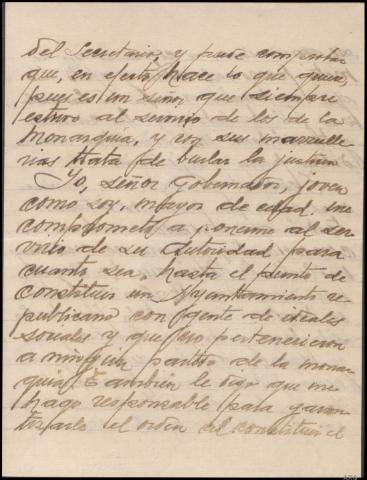 del Secretario, y pude comprobar
que, en efecto, hace lo que quiere,
pues es un señor que siempre
estuvo al servicio de los de la
monarquia, y con sus
trata de burlar la justicia
Yo, señor Gobernador, joven
como soy, mayor de edad, me
comprometo a ponerme al ser
vicio de su Autoridad para
cuanto sea, hasta el punto de
constituir un Ayuntamiento re
publicano con gente de ideales
sociales y que no pertenecieron
a ningún partido de la monar
quia. Tambien le digo que me
hago responsable para garan
tizarle el orden del constituir el